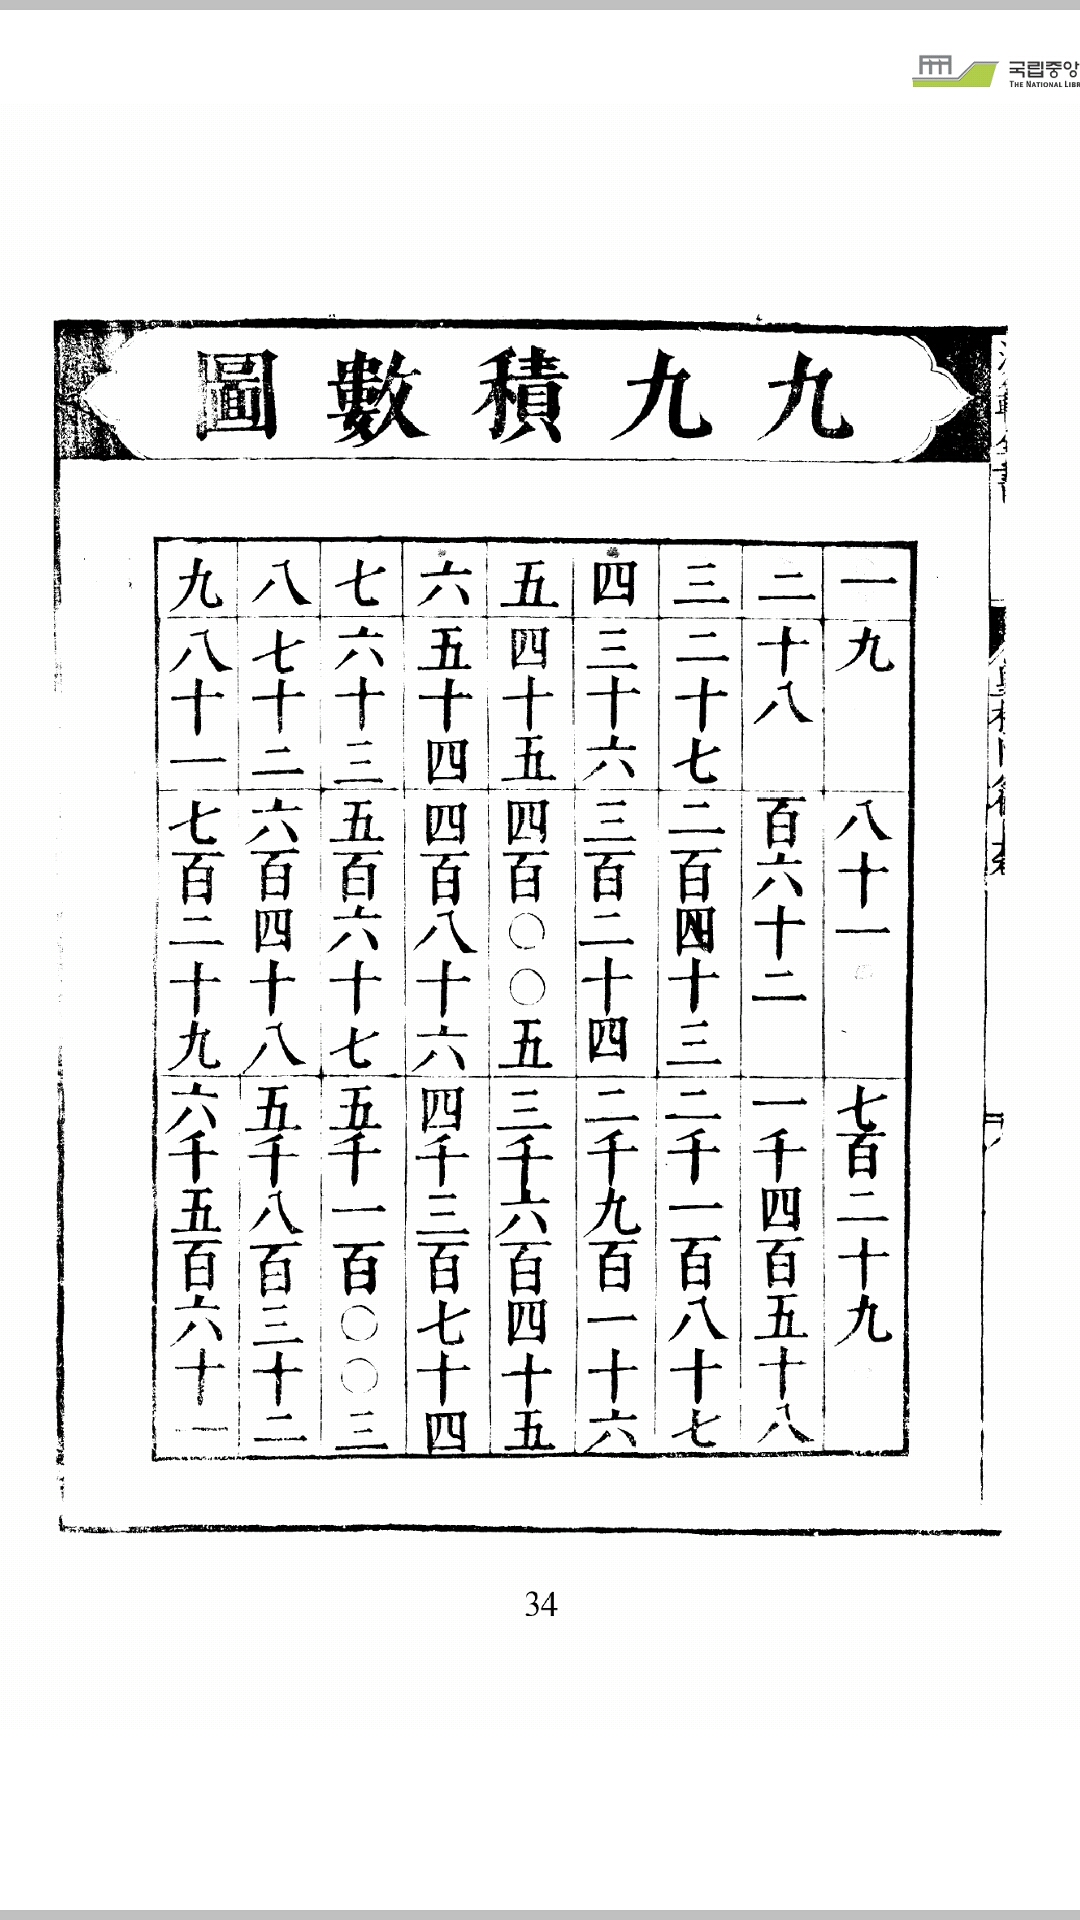 국립중앙
THE NATIONAL LIBR
九九積數圖
一
九
八十一
七百二十九
二
十八
百六十二
一千四百五十八
三
二十七
二百四十三
二千一百八十七
四
三十六
三百二十四
二千九百一十六
五
四十五
四百〇〇五
三千六百四十五
六
五十四
四百八十六
四千三百七十四
七
六十三
五百六十七
五千一百〇〇三
八
七十二
六百四十八
五千八百三十二
九
八十一
七百二十九
六千五百六十一
34